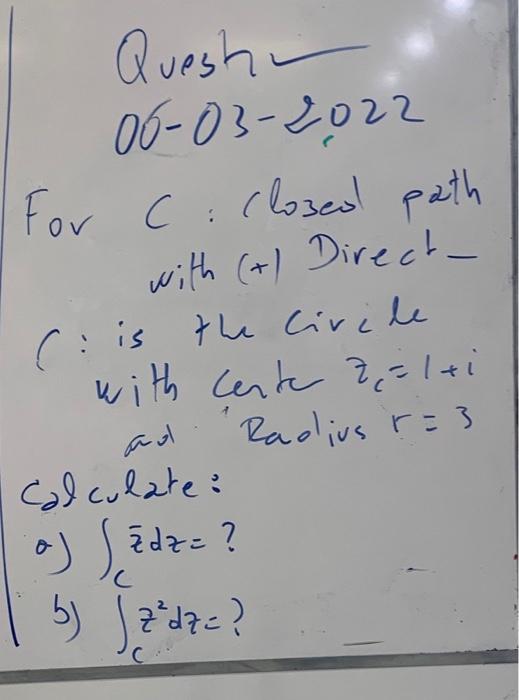 Quest
06-03-2022
For C : Closed path
with (+) Direct
C : is the Circle
with Center z_c = 1+i
and Radius r = 3
Calculate:
a) ∫_C z̄dz = ?
b) ∫_C z²dz = ?